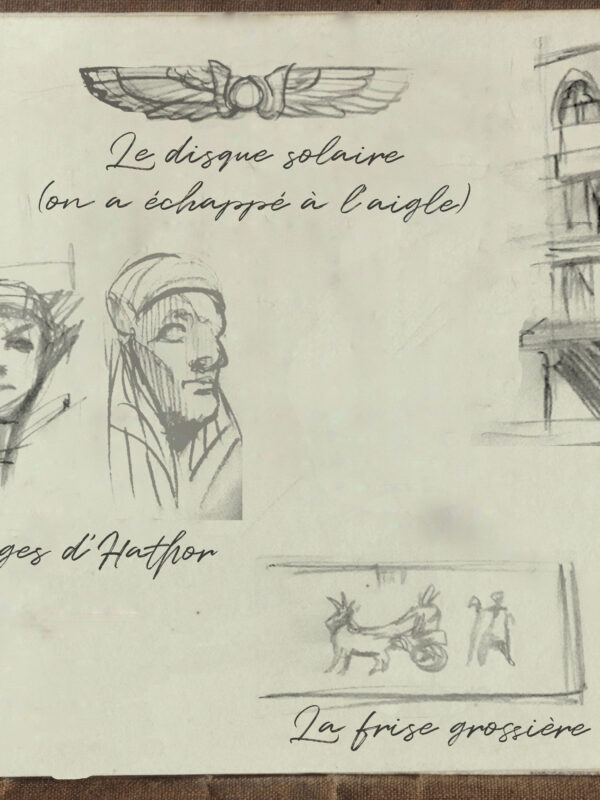 Le disque solaire
(on a échappé à l'aigle)
ges d'Hathor
La frise grossière